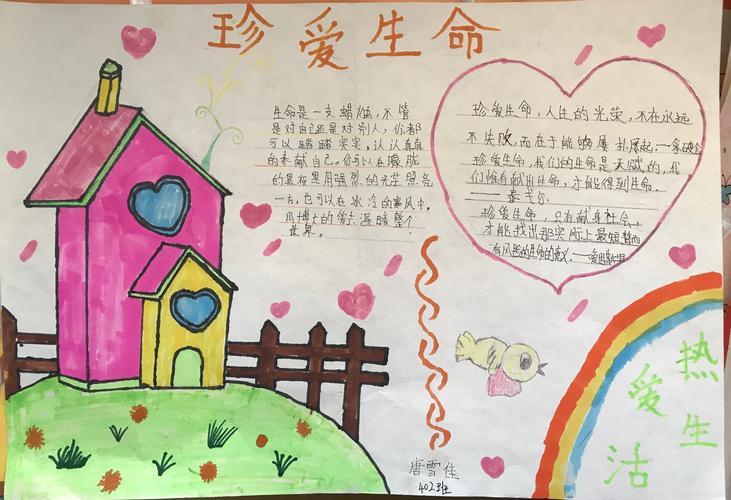 珍爱生命
生命是一支蜡烛,不管
是对自己还是对别人,你都
可以踏踏实实,认认真真
的奉献自己。你可以在朦胧
的黑夜里用强烈的光芒照亮
一方,也可以在冰冷的寒风中,
用博大的爱去温暖整个
世界。
珍爱生命,人生的光荣,不在永远
不失败,而在于能够屡扑屡起.——拿破仑
珍爱生命,我们的生命是天赋的,我
们惟有献出生命,才能得到生命.
泰戈尔
珍爱生命,只有献身社会,
才能找出那实际上是短暂而
有风险的生命的意义.——爱因斯坦
热爱生活
唐雪佳
402班